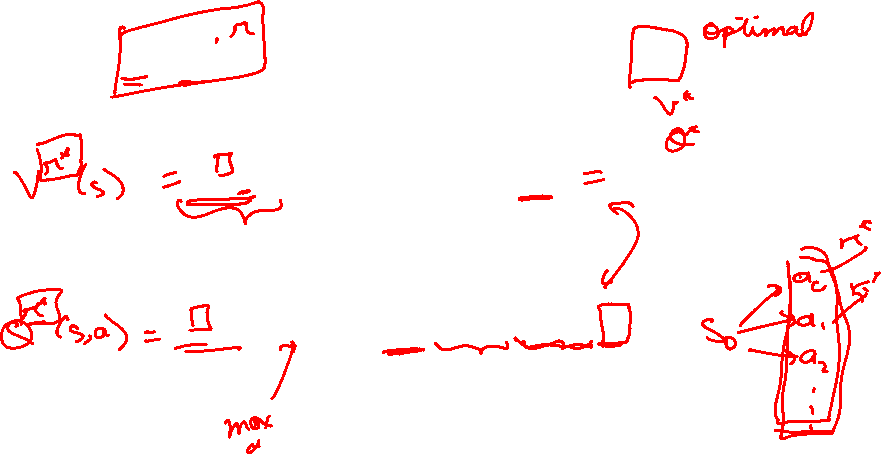 , π
optimal
V*
Q*
V^π*(s) =
=
Q^π*(s,a) =
max
a
S0
a0
a1
a2
π*
π'